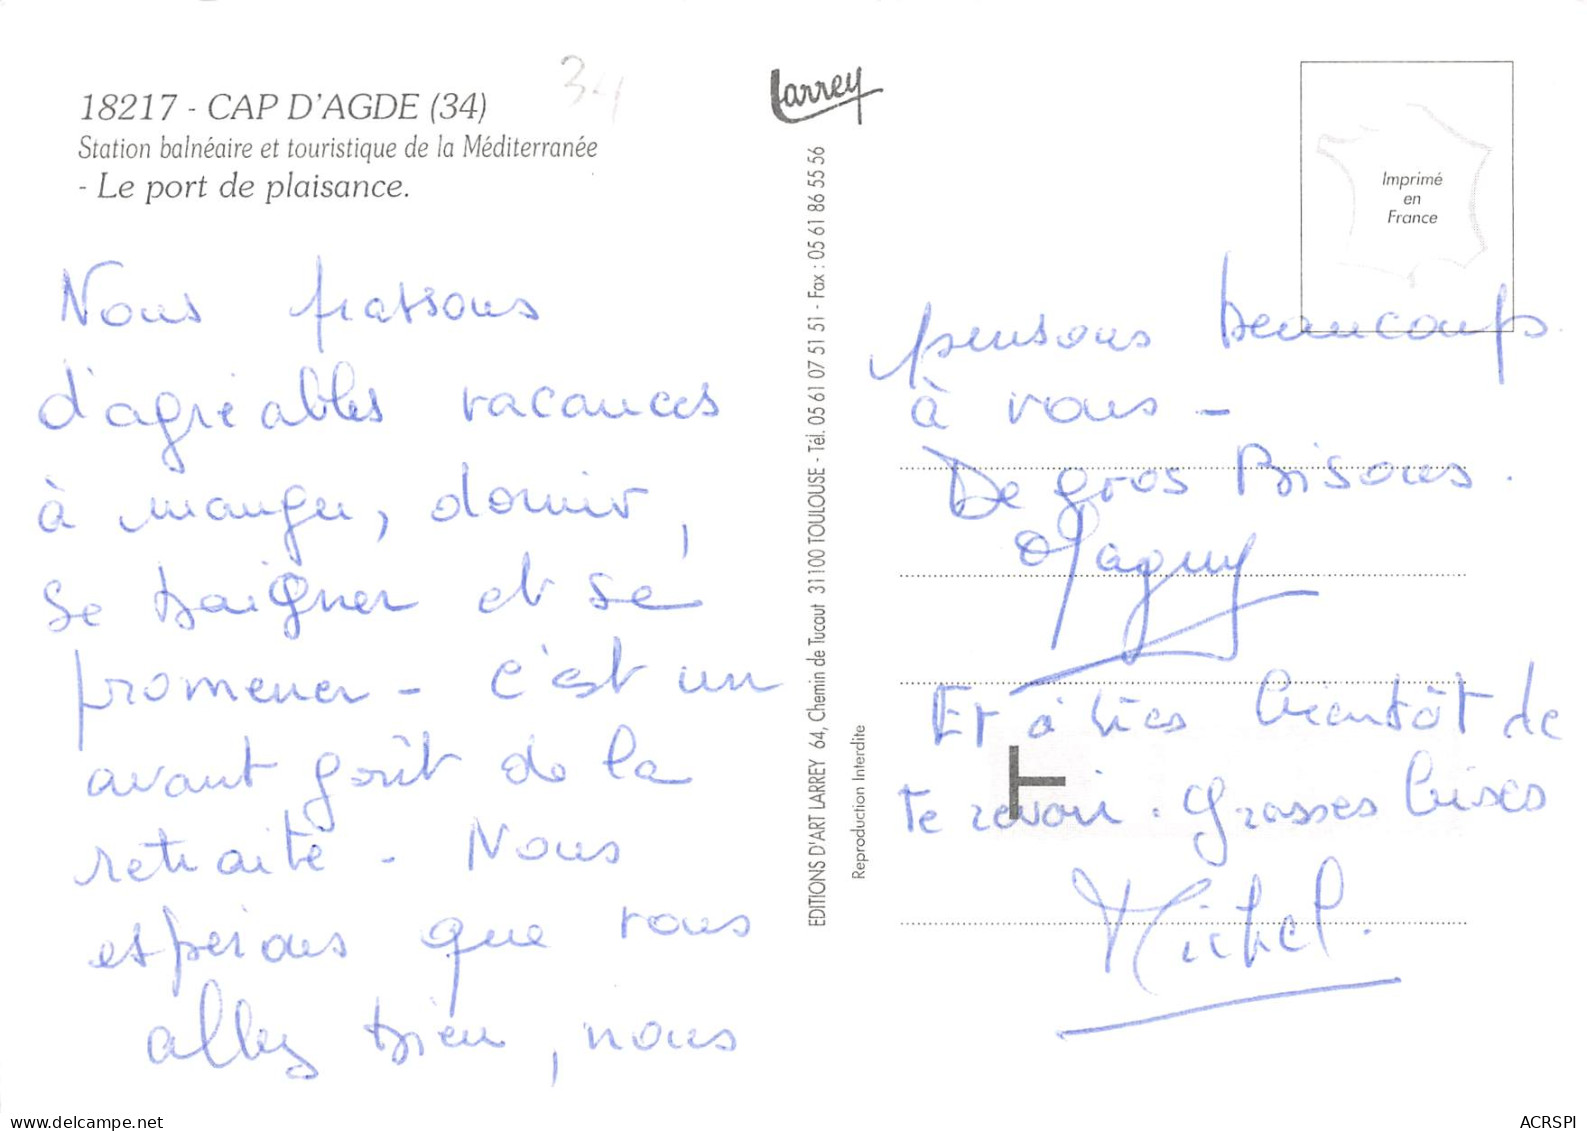 18217 - CAP D'AGDE (34)
Station balnéaire et touristique de la Méditerranée
- Le port de plaisance.
34
Nous passons
d'agréables vacances
à manger, dormir,
se baigner et se
promener - c'est un
avant goût de la
retraite - Nous
espérons que vous
allez bien, nous
Larrey
EDITIONS D'ART LARREY 64, Chemin de Tucaut 31100 TOULOUSE - Tél. 05 61 07 51 51 - Fax : 05 61 86 55 56
Reproduction Interdite
Imprimé
en
France
pensons beaucoup
à vous -
De gros Bisous.
Maguy
Et à très bientôt de
te revoir. Grosses bises
Michel.
T
www.delcampe.net
ACRSPI